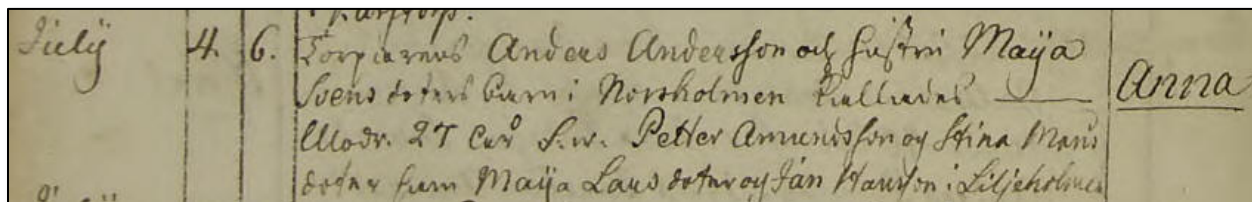 Karstorp.
Julÿ 4. 6. Torparens Anders Andersson och hustru Maÿa
Svensdoters barn i Norsholmen kallades — Anna
Modr. 27 åhr F.w. Petter Amundsson og Stina Mans
doter sam Maÿa Lars doter og Jan Hansson i Liljeholmen